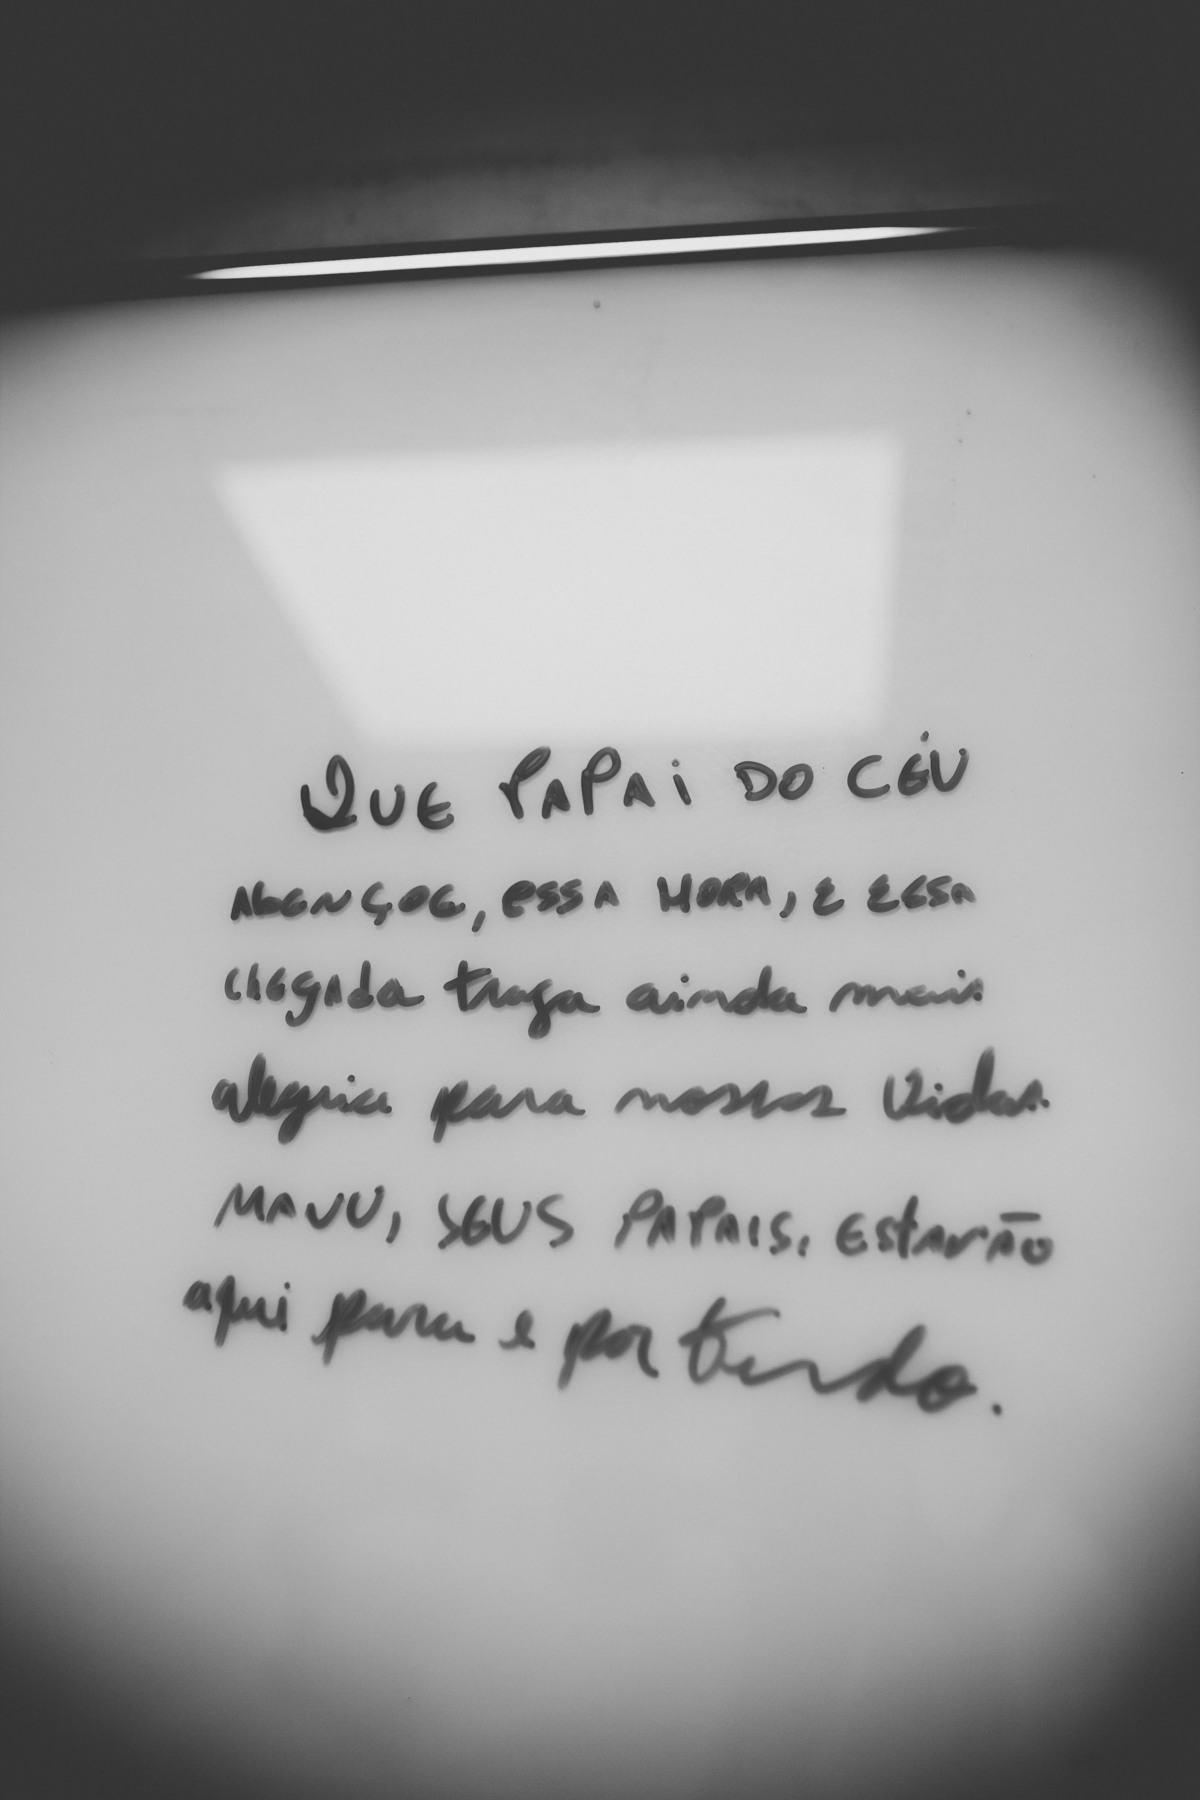 QUE PAPAi DO CÉU
ABENÇOE, ESSA HORA, E ESSA
chegada traga ainda mais
alegria para nossas vidas.
MAVU, SEUS PAPAIS, EStARÃO
aqui para e por tudo.